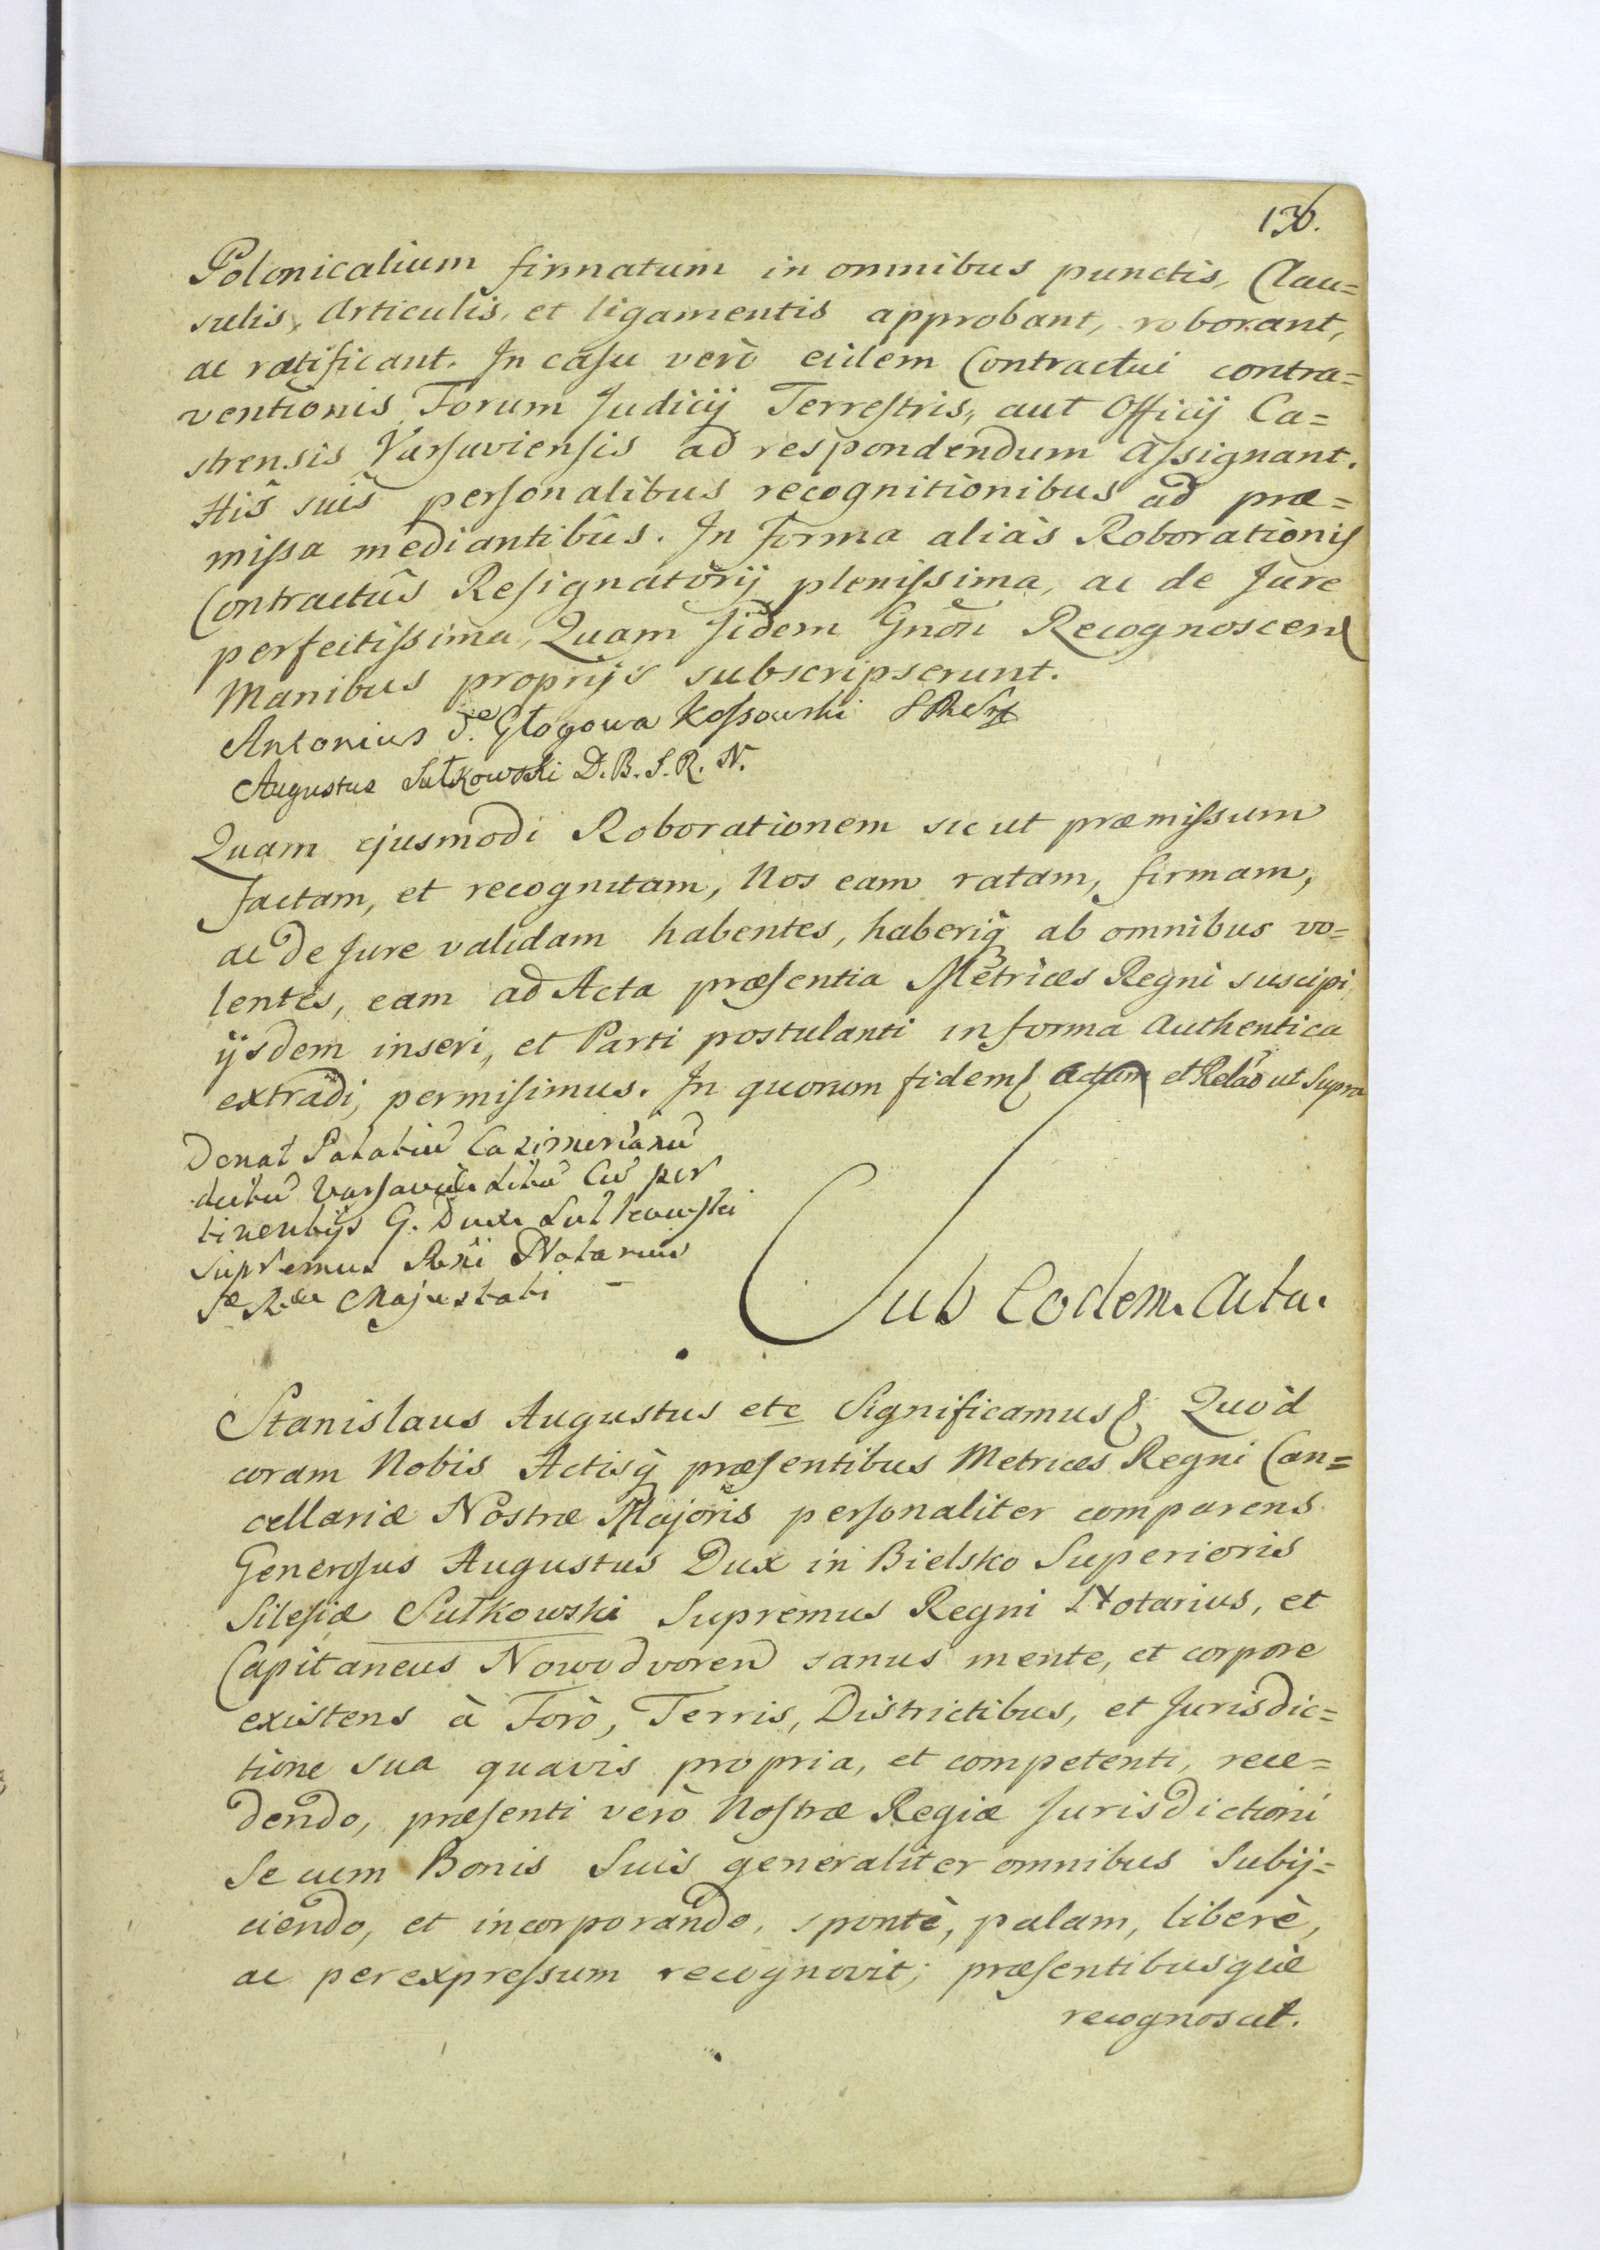 136.
Polonicalium firmatum in omnibus punctis, Clau=
sulis, Articulis, et ligamentis approbant, roborant,
ac ratificant. In casu verò eidem Contractui contra=
ventionis Forum Judicij Terrestris, aut Officij Ca=
strensis Varsaviensis ad respondendum assignant.
His suis personalibus recognitionibus ad præ=
missa mediantibûs. In Forma aliàs Roborationis
Contractûs Resignatorij plenissima, ac de Jure
perfectissima, Quam iidem Gnõsi Recognoscen
Manibus proprijs subscripserunt.
Antonius de Głogowa Kossowski
Augustus Sułkowski D. B. S. R. N.
Quam ejusmodi Roborationem sicut præmissum
factam, et recognitam, Nos eam ratam, firmam,
ac de Jure validam habentes, haberiq ab omnibus vo=
lentes, eam ad Acta præsentia Metrices Regni suscipi,
ijsdem inseri, et Parti postulanti in forma Authentica
extradi, permisimus. In quorum fidem Actum et Relaõ ut Supra
Donat Palatiu Cazimirianu
Varsaviæ situ Cu per
tinentijs G. Dux Sulkowski
Supremus Rñi Notarius
Sæ R.æ Majestati –
Sub Eodem. Actu.
Stanislaus Augustus etc Significamus Quòd
coram Nobis Actisq præsentibus Metrices Regni Can=
cellariæ Nostræ Majoris personaliter comparens
Generosus Augustus Dux in Bielsko Superioris
Silesiæ Sułkowski Supremus Regni Notarius, et
Capitaneus Nowodvoren sanus mente, et corpore
existens à Forò, Terris, Districtibus, et Jurisdic=
tione sua quavis propria, et competenti, rece=
dendo, præsenti verò Nostræ Regiæ Jurisdictioni
Se cum Bonis Suis generaliter omnibus Subij=
ciendo, et incorporando, spontè, palam, liberè,
ac per expressum recognovit; præsentibusquè
recognoscit.